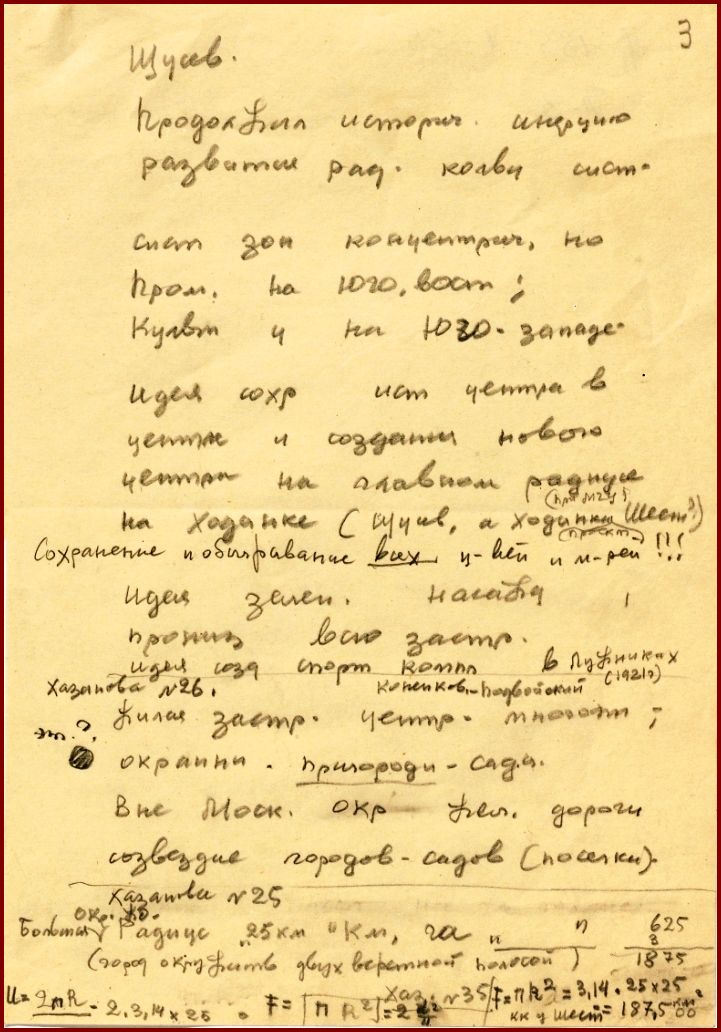 3
Щусев.
Продолжил историч. инерцию
развития рад. кольц сист.
сист зон концентрич, но
Пром. на юго.вост;
Культ ц на Юго-западе.
Идея сохр ист центра в
центре и создания нового
центра на главном радиусе
на Ходынке (Щусев, а Ходынка Шест?)
Сохранение и обыгрывание всех ц-вей и м-рей !!!
Идея зелен. насажд
прониз всю застр.
идея созд спорт компл в Лужниках
(1921г)
Хазанова №26. Коненков-Подвойский
эт.?
Жилая застр. центр. многоэт;
окраинн. пригороди-сада.
Вне Моск. окр жел. дороги
созвездие городов-садов (поселки).
Хазанова №25
окр.
Большая Радиус "25км" Км, га " " 625
3
1875
(город окружить двух верстной полосой)
Хаз. №35
2πR = 2.3,14×25. F=πR²
F=πR²=3,14.25×25
Шест = 187,5 км²